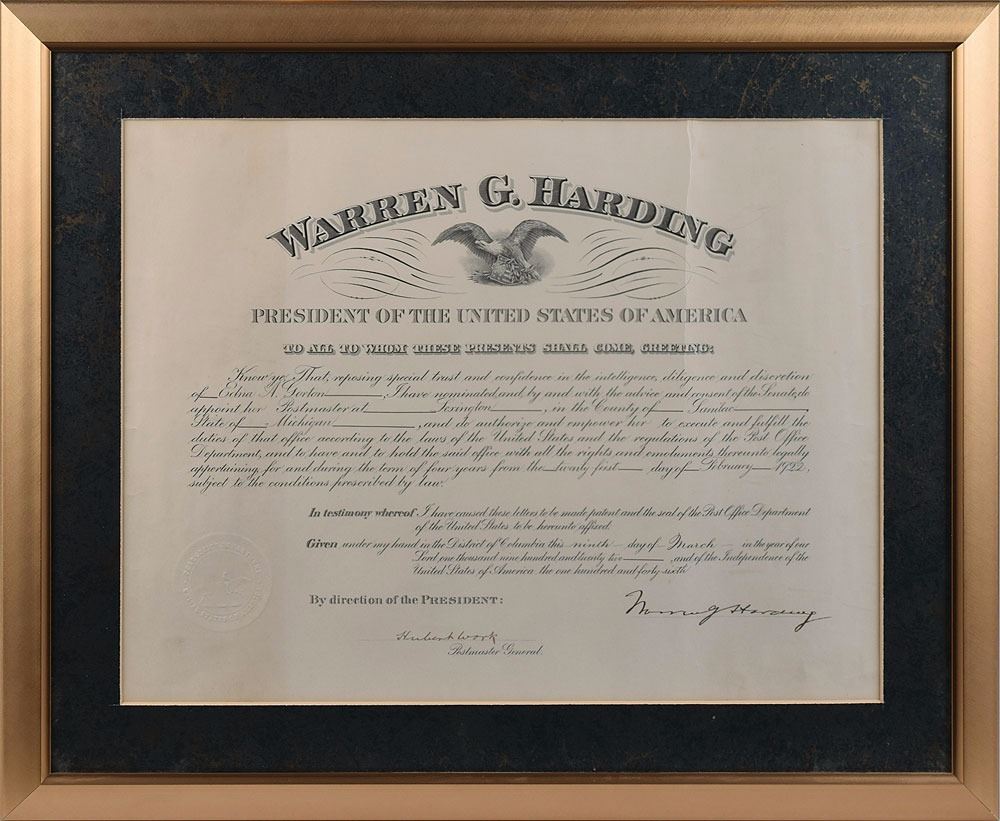 WARREN G. HARDING
PRESIDENT OF THE UNITED STATES OF AMERICA
TO ALL TO WHOM THESE PRESENTS SHALL COME, GREETING:
Know ye, That, reposing special trust and confidence in the intelligence, diligence and discretion
of Edna N. Gorton, I have nominated, and, by and with the advice and consent of the Senate, do
appoint her Postmaster at Lexington, in the County of Sanilac,
State of Michigan, and do authorize and empower her to execute and fulfill the
duties of that office according to the laws of the United States and the regulations of the Post Office
Department, and to have and to hold the said office with all the rights and emoluments thereunto legally
appertaining, for and during the term of four years from the twenty first day of February 1922,
subject to the conditions prescribed by law.
In testimony whereof I have caused these letters to be made patent and the seal of the Post Office Department
of the United States to be hereunto affixed.
Given under my hand in the District of Columbia this ninth day of March in the year of our
Lord one thousand nine hundred and twenty two, and of the Independence of the
United States of America, the one hundred and forty-sixth
By direction of the PRESIDENT:
Warren G Harding
Hubert Work
Postmaster General.